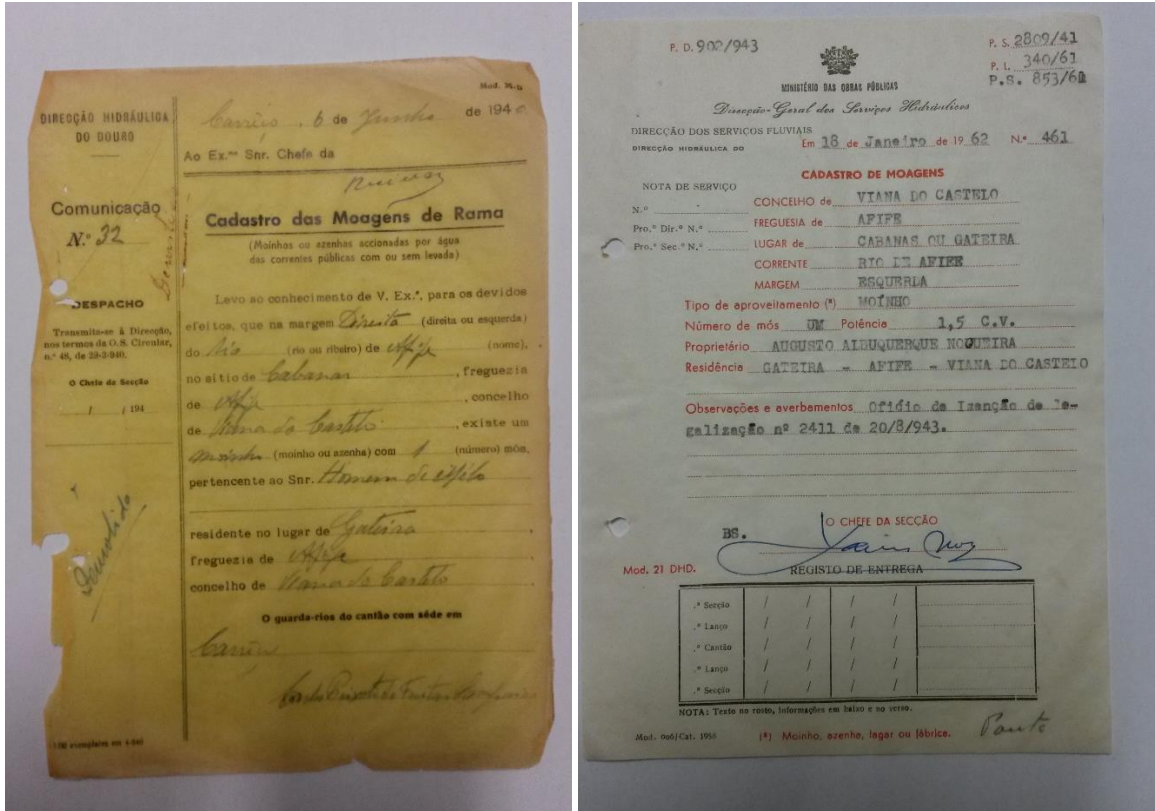 Mod. M-D
DIRECÇÃO HIDRÁULICA
DO DOURO
Carreço, 6 de Junho de 1940
Ao Ex.mo Snr. Chefe da
Comunicação
N.º 32
Cadastro das Moagens de Rama
(Moínhos ou azenhas accionadas por água
das correntes públicas com ou sem levada)
DESPACHO
Transmita-se à Direcção,
nos termos da O.S. Circular,
n.º 48, de 29-3-940.
O Chefe da Secção
/ / 194
Demolido
Levo ao conhecimento de V. Ex.ª, para os devidos
efeitos, que na margem Direita (direita ou esquerda)
do rio (rio ou ribeiro) de Afife (nome),
no sítio de Cabanas, freguezia
de Afife, concelho
de Viana do Castelo, existe um
moinho (moinho ou azenha) com 1 (número) mós,
pertencente ao Snr. Homem de Melo
residente no lugar de Gateira,
freguezia de Afife
concelho de Viana do Castelo
O guarda-rios do cantão com séde em
Carreço
P. D. 902/943
P. S. 2809/41
P. L. 340/61
P.S. 853/61
MINISTÉRIO DAS OBRAS PÚBLICAS
Direcção-Geral dos Serviços Hidráulicos
DIRECÇÃO DOS SERVIÇOS FLUVIAIS
DIRECÇÃO HIDRÁULICA DO
Em 18 de Janeiro de 1962 N.º 461
CADASTRO DE MOAGENS
NOTA DE SERVIÇO
N.º
Pro.º Dir.º N.º
Pro.º Sec.º N.º
CONCELHO de VIANA DO CASTELO
FREGUESIA de AFIFE
LUGAR de CABANAS OU GATEIRA
CORRENTE RIO DE AFIFE
MARGEM ESQUERDA
Tipo de aproveitamento (*) MOÍNHO
Número de mós UM Potência 1,5 C.V.
Proprietário AUGUSTO ALBUQUERQUE NOGUEIRA
Residência GATEIRA - AFIFE - VIANA DO CASTELO
Observações e averbamentos Ofídio de Izenção de le-
galização nº 2411 de 20/8/943.
O CHEFE DA SECÇÃO
BS.
Mod. 21 DHD.
REGISTO DE ENTREGA
.ª Secção / / / /
.º Lanço / / / /
.º Cantão / / / /
.º Lanço / / / /
.ª Secção / / / /
NOTA: Texto no rosto, informações em baixo e no verso.
Mod. 006/Cat. 1958
(*) Moinho, azenha, lagar ou fábrica.
Ponte